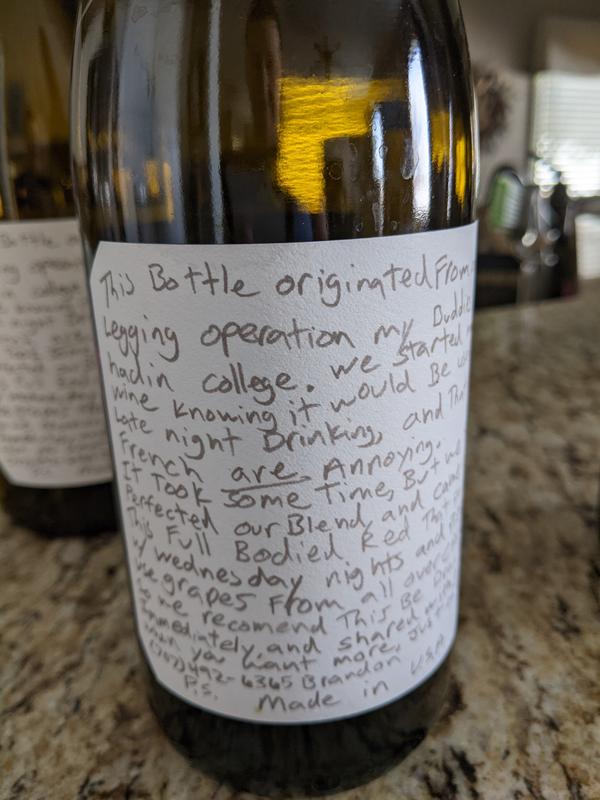 This Bottle originated From
Legging operation my Buddie
had in college. we started
wine knowing it would Be
Late night Drinking, and
French are Annoying.
It Took some Time, But we
Perfected our Blend, and came
This Full Bodied Red That
w/ wednesday nights and
use grapes From all over
so we recomend This Be
Immediately, and shared with
when you want more, Just
(707)492-6365 Brandon
P.S. Made in U.S.A